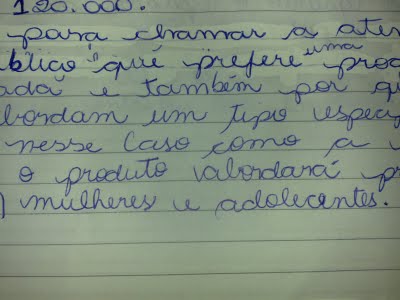 120.000.
para chamar a aten
blico que prefere uma prod
ada e também por q
bordam um tipo especí
nesse caso como a
o produto abordará p
mulheres e adolecentes.